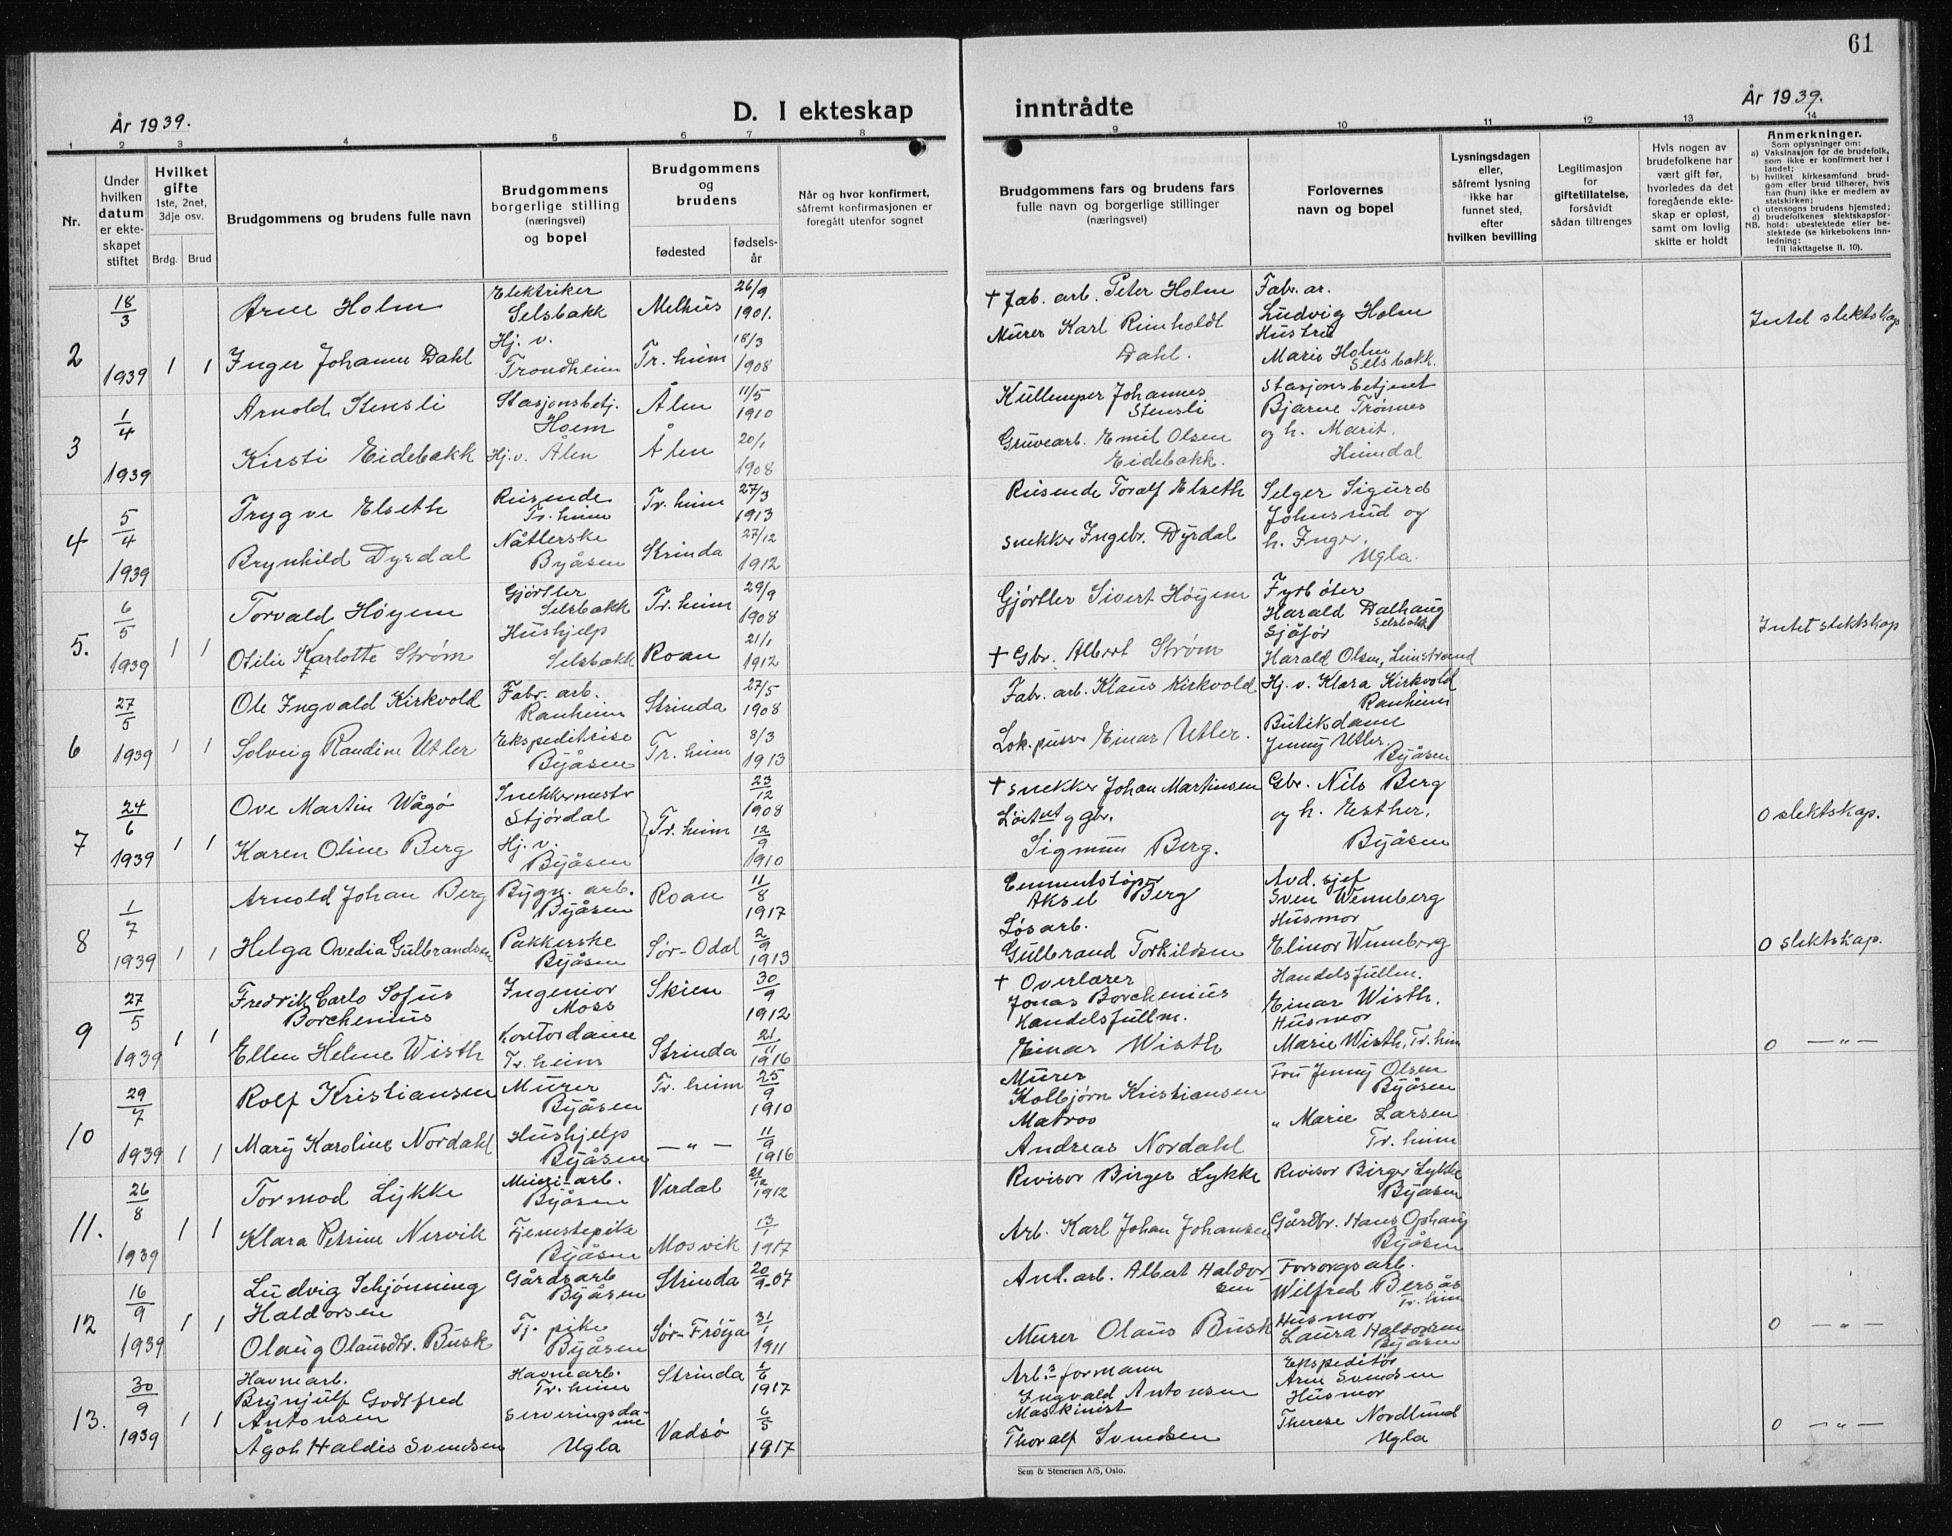 61
År 1939.
D. I ekteskap
inntrådte
År 1939.
1 2 3 4 5 6 7 8 9 10 11 12 13 14
Nr.
Under hvilken datum er ekteskapet stiftet
Hvilket gifte 1ste, 2net, 3dje osv.
Brdg. Brud
Brudgommens og brudens fulle navn
Brudgommens borgerlige stilling (næringsvei) og bopel
Brudgommens og brudens
fødested fødselsår
Når og hvor konfirmert, såfremt konfirmasjonen er foregått utenfor sognet
Brudgommens fars og brudens fars fulle navn og borgerlige stillinger (næringsvei)
Forlovernes navn og bopel
Lysningsdagen eller, såfremt lysning ikke har funnet sted, efter hvilken bevilling
Legitimasjon for giftetillatelse, forsåvidt sådan tiltrenges
Hvis nogen av brudefolkene har vært gift før, hvorledes da det foregående ekteskap er opløst, samt om lovlig skifte er holdt
Anmerkninger.
Som oplysninger om:
a) Vaksinasjon for de brudefolk, som ikke er konfirmert her i landet;
b) hvilket kirkesamfund brudgom eller brud tilhører, hvis han (hun) ikke er medlem av statskirken;
c) utensogns brudens hjemsted;
d) brudefolkenes slektskapsforhold: ubeslektede eller beslektede (se kirkebokens innledning:
NB.
Til iakttagelse II. 10).
2 18/3 1939 1 1
Arne Holm Elektriker Selsbakk Melhus 26/9 1901. † Fab. arb. Peter Holm Fabr. ar. Ludvig Holm
Inger Johanne Dahl Hj. v. Trondheim Tr. heim 18/3 1908 Murer Karl Reinholdt Dahl. Hustru Marie Holm Selsbakk. Intet slektskap
3 1/4 1939
Arnold Stensli Stasjonsbetj. Hoem Ålen 11/5 1910 Johannes Stensli Stasjonsbetjent Bjarne Trønnes
Kirsti Eidebakk Hj. v. Ålen Ålen 20/1 1908 Gruvearb. Emil Olsen Eidebakk. og h. Marit, Heimdal
4 5/4 1939
Trygve Elseth Reisende Tr. heim Tr. heim 27/3 1913 Reisende Toralf Elseth Selger Sigurd Johnsrud og
Brynhild Dyrdal Nåtlerske Byåsen Strinda 27/12 1912 snekker Ingebr. Dyrdal h. Inger. Ugla.
5. 6/5 1939 1 1
Torvald Høyem Gjørtler Selsbakk Tr. heim 29/9 1908 Gjørtler Sivert Høyem Fyrbøter Harald Dalhaug Selsbakk
Otilie Karlotte Strøm Hushjelp Selsbakk Roan 21/1 1912 † Gbr. Albert Strøm Sjåfør Harald Olsen, Leinstrand Intet slektskap
6 27/5 1939 1 1
Ole Ingvald Kirkvold Fabr. arb. Ranheim Strinda 27/5 1908 Fabr. arb. Klaus Kirkvold Hj. v. Klara Kirkvold Ranheim
Solveig Randine Utler Ekspeditrise Byåsen Tr. heim 8/3 1913 Lok. pusser Einar Utler. Butikdame Jenny Utler, Byåsen
7 24/6 1939 1 1
Ove Martin Wågø Snekkermestr Stjørdal } Tr. heim 23/12 1908 † snekker Johan Martinsen Gbr. Nils Berg
Karen Oline Berg Hj. v. Byåsen 12/9 1910 Løitnt og gbr. Sigmun Berg. og h. Esther, Byåsen 0 slektskap.
8 1/7 1939 1 1
Arnold Johan Berg Bygn. arb. Byåsen Roan 11/8 1917 Cementstøper Aksel Berg Avd. sjef Sven Wenneberg
Helga Ovedia Gulbrandsen Pakkerske Byåsen Sør-Odal 2/9 1913 Løsarb. Gulbrand Torkildsen Husmor Elinor Wenneberg 0 slektskap.
9 27/5 1939 1 1
Fredrik Carlo Sofus Borchenius Ingeniør Moss Skien 30/9 1912 † Overlærer Jonas Borchenius Handelsfullm. Einar Wisth.
Ellen Helene Wisth Kontordame Tr. heim Strinda 21/11 1916 Handelsfullm. Einar Wisth Husmor Marie Wisth, Tr. heim 0 — " —
10 29/7 1939 1 1
Rolf Kristiansen Murer Byåsen Tr. heim 25/9 1910 Murer Kolbjørn Kristiansen Fru Jenny Olsen Byåsen
Mary Karoline Nordahl Hushjelp Byåsen — " — 11/9 1916 Matros Andreas Nordahl " Marie Larsen Tr. heim
11. 26/8 1939 1 1
Tormod Lykke Meieri-arb. Byåsen Verdal 21/12 1912 Revisor Birger Lykke Revisor Birger Lykke Byåsen
Klara Petrine Nervik Tjenestepike Byåsen Mosvik 13/1 1917 Arb. Karl Johan Johansen Gårdbr. Hans Ophaug Byåsen
12 16/9 1939 1 1
Ludvig Schjønning Haldorsen Gårdsarb Byåsen Strinda 20/9-07 Anl. arb. Albert Haldorsen Forsorgsarb. Wilfred Bersås Tr. heim
Olaug Olausdtr. Busk Tj. pike Byåsen Sør-Frøya 31/1 1911 Murer Olaus Busk Husmor Laura Haldorsen Byåsen 0 — " —
13. 30/9 1939 1 1
Havnearb. Brynjulf Godtfred Antonsen Havnearb. Tr. heim Strinda 1/6 1917 Arb.s formann Ingvald Antonsen Ekspeditør Arne Svendsen
Ågot Haldis Svendsen Serveringsdame Ugla Vadsø 6/5 1917 Maskinist Thoralf Svendsen Husmor Therese Nordlund Ugla 0 — " —
Sem & Stenersen A/S, Oslo.